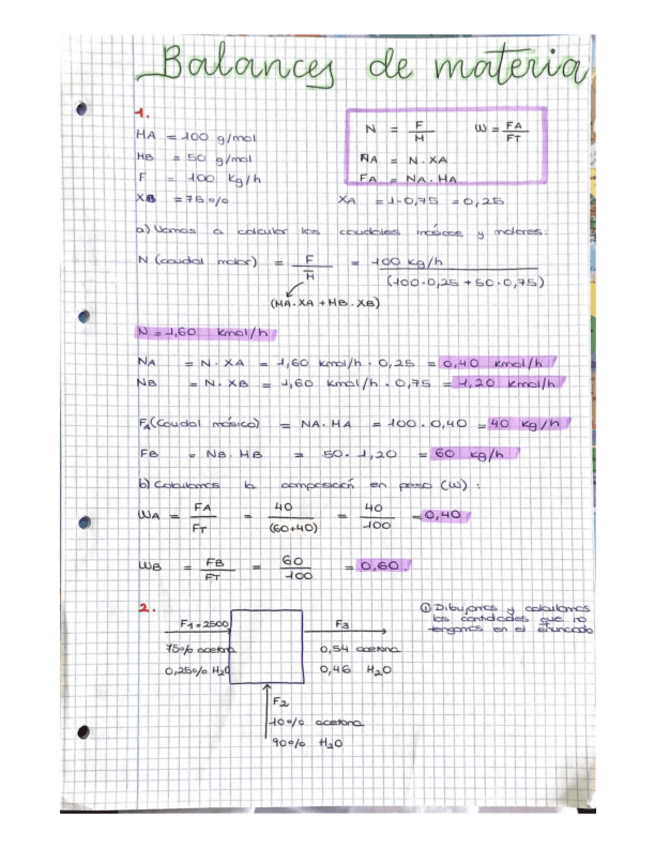 Balances de materia
1.
MA = 100 g/mol
MB = 50 g/mol
F = 100 Kg/h
XB = 75%
N = F / M̅
W = FA / FT
NA = N · XA
FA = NA · MA
XA = 1-0,75 = 0,25
a) Vamos a calcular los caudales másicos y molares.
N (caudal molar) = F / M̅ = 100 kg/h / (100·0,25 + 50·0,75)
(MA·XA + MB·XB)
N = 1,60 Kmol/h
NA = N · XA = 1,60 Kmol/h · 0,25 = 0,40 Kmol/h
NB = N · XB = 1,60 Kmol/h · 0,75 = 1,20 Kmol/h
FA (Caudal másico) = NA · MA = 100 · 0,40 = 40 kg/h
FB = NB · MB = 50 · 1,20 = 60 kg/h
b) Calculamos la composición en peso (W) :
WA = FA / FT = 40 / (60+40) = 40 / 100 = 0,40
WB = FB / FT = 60 / 100 = 0,60
2.
F1 = 2500
75% acetona
0,25% H2O
F3
0,54 acetona
0,46 H2O
① Dibujamos y calculamos
las cantidades que no
tengamos en el enunciado
F2
10% acetona
90% H2O